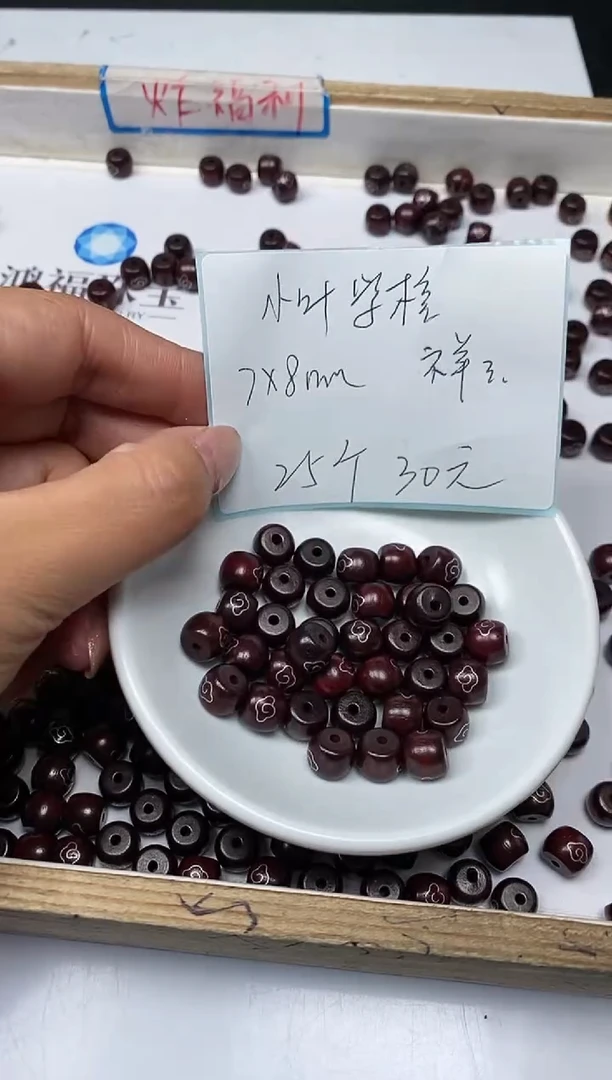 炸福利
鸿福珠宝
小叶紫檀
7x8mm 祥云
25个 30元